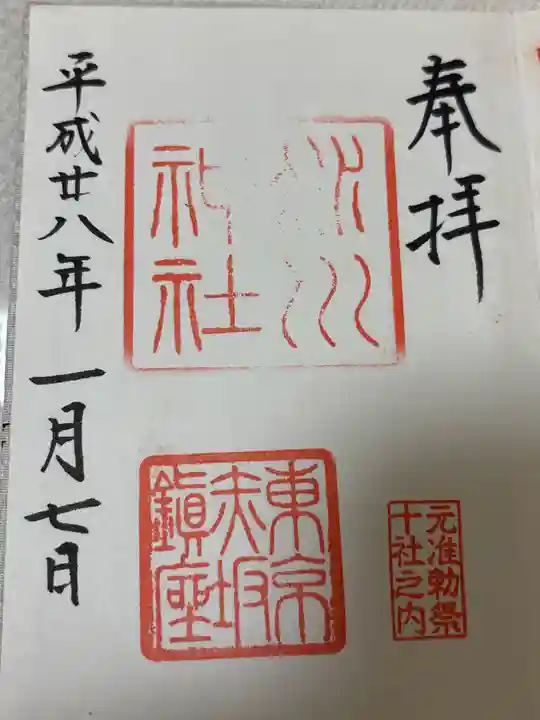 奉拝
氷川
神社
東京
赤坂
鎮座
元准勅祭
十社之内
平成廿八年一月七日